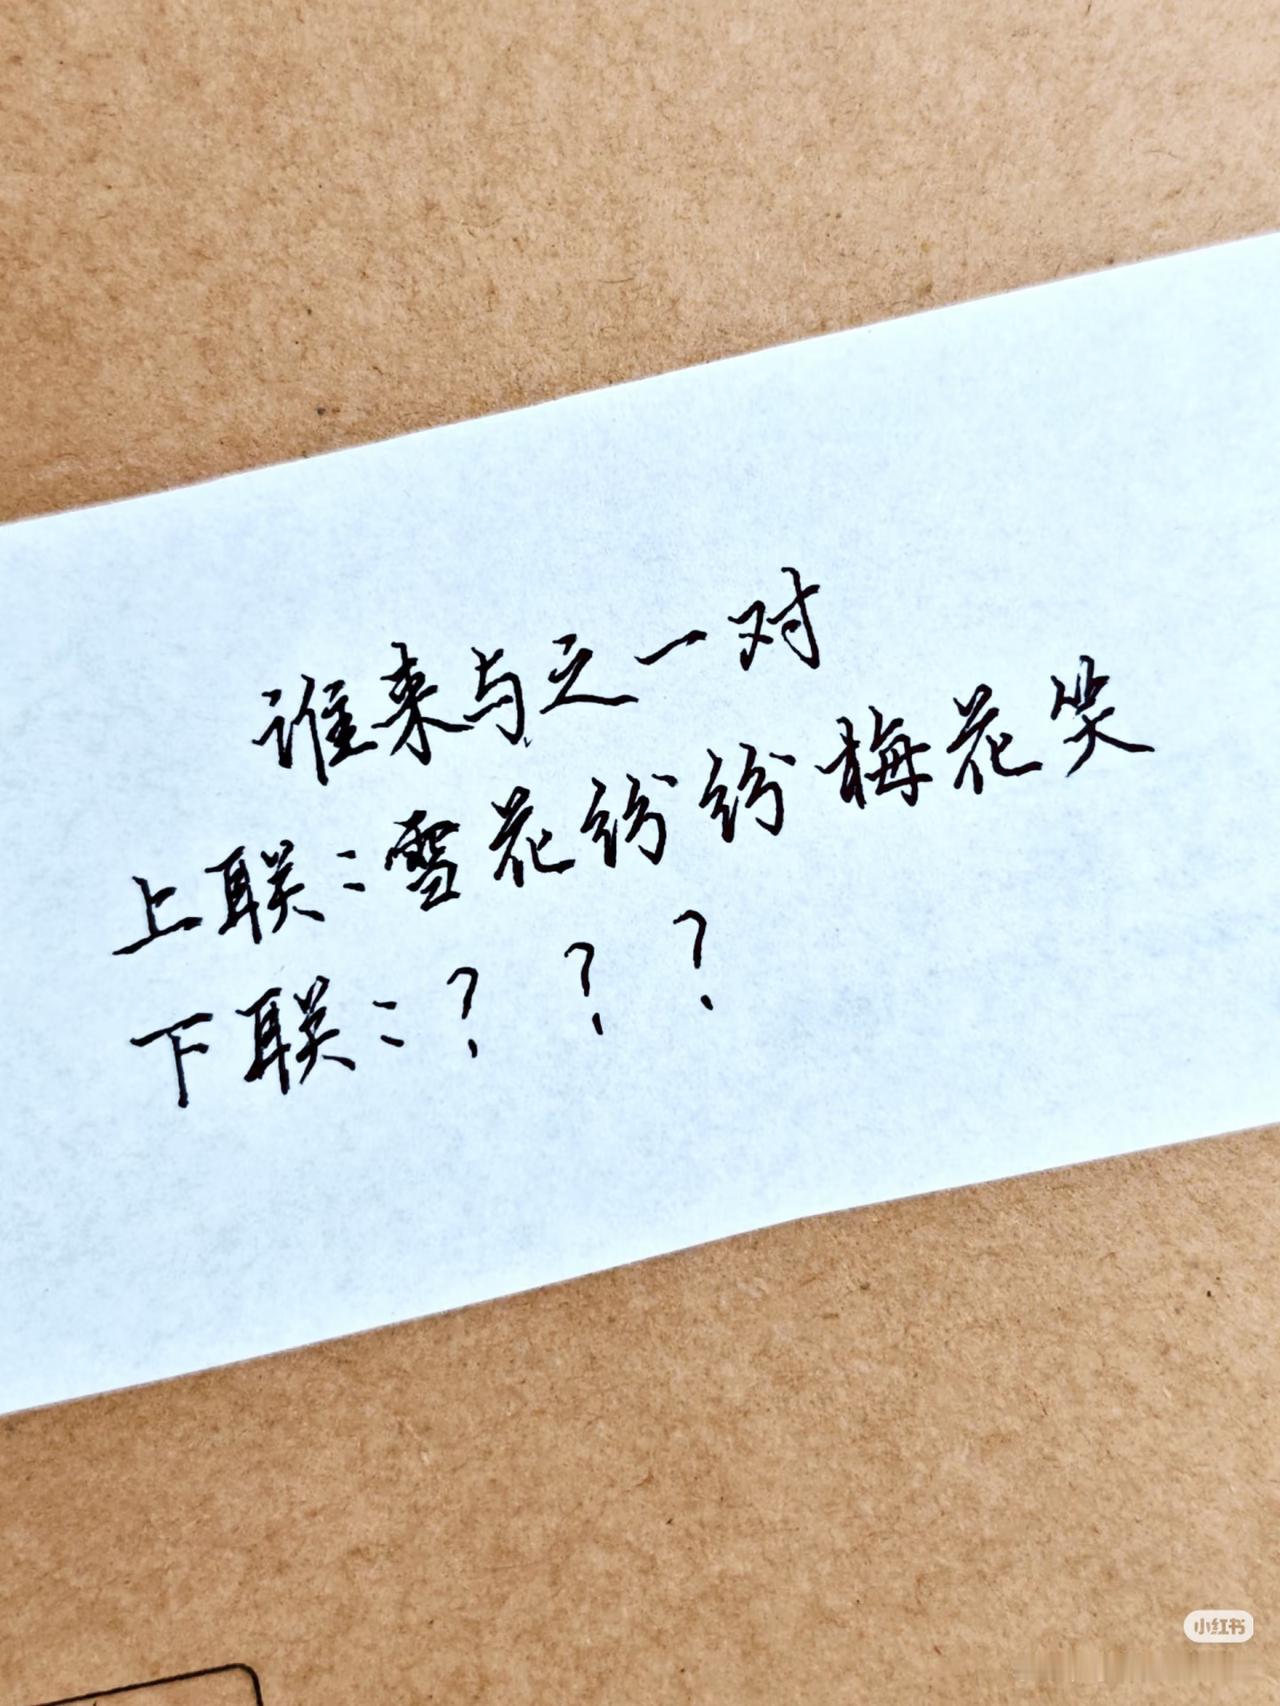 谁来与之一对
上联:雪花纷纷梅花笑
下联:???
小红书